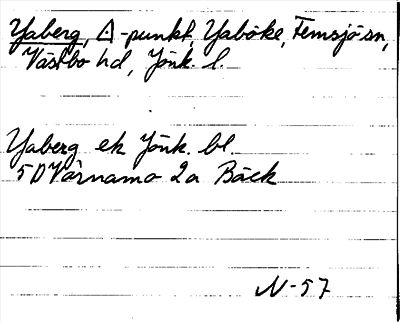 Yaberg, Δ-punkt, Yaböke, Femsjö sn,
Västbo hd, Jönk. l.
Yaberg ek Jönk. bl.
5D Värnamo 2a Bäck
N-57